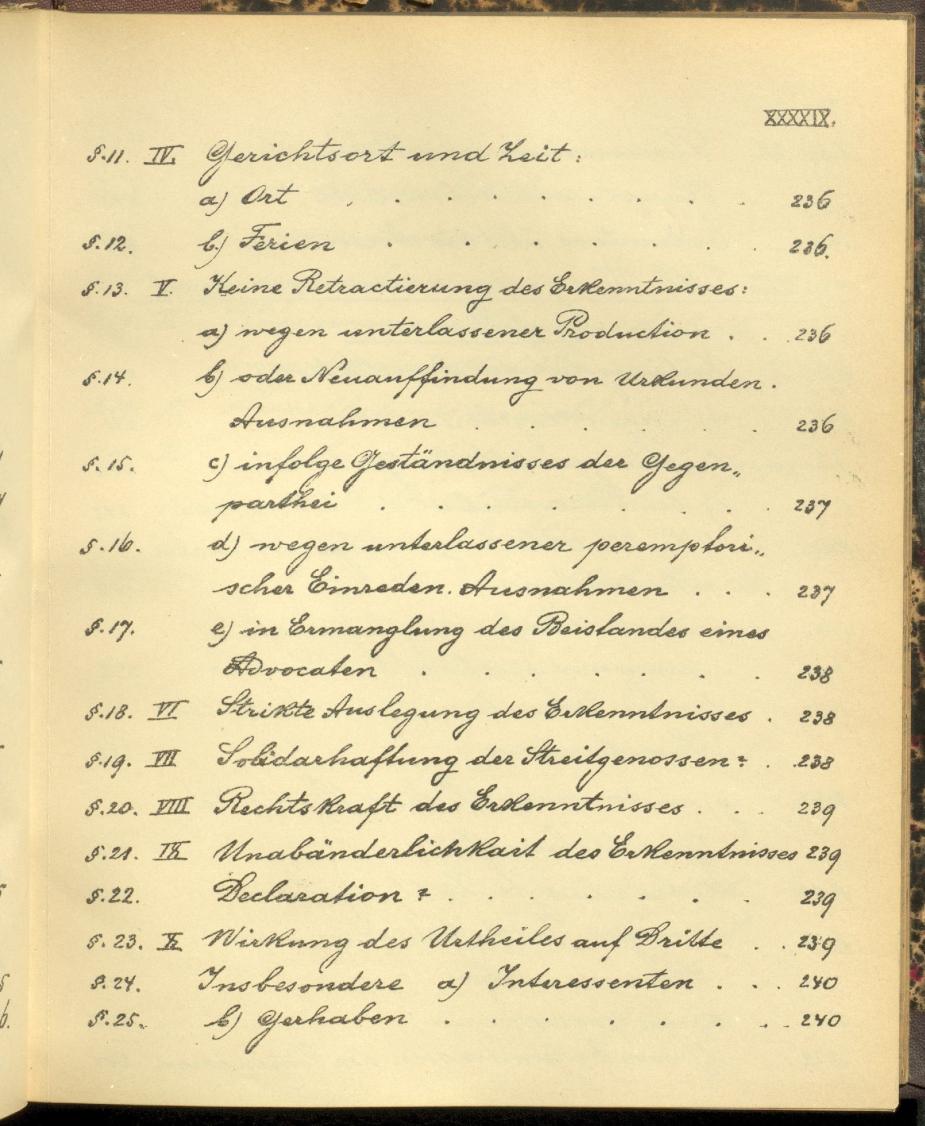 XXXXIX.
§.11. IV. Gerichtsort und Zeit:
a) Ort . . . . . . . . . 236
§.12. b.) Ferien . . . . . . . . 236.
§.13. V. Keine Retractierung des Erkenntnisses:
a) wegen unterlassener Production . . . 236
§.14. b) oder Neuauffindung von Urkunden.
Ausnahmen . . . . . . 236
§.15. c) infolge Geständnisses der Gegen„
parthei . . . . . . . . 237
§.16. d) wegen unterlassener peremptori„
scher Einreden. Ausnahmen . . . 237
§.17. e) in Ermanglung des Beistandes eines
Advocaten . . . . . . . 238
§.18. VI Strikte Auslegung des Erkenntnisses . 238
§.19. VII Solidarhaftung der Streitgenossen? . . 238
§.20. VIII Rechtskraft des Erkenntnisses . . . 239
§.21. IX Unabänderlichkait des Erkenntnisses 239
§.22. Declaration? . . . . . . 239
§.23. X. Wirkung des Urtheiles auf Dritte . . 239
§.24. Insbesondere a) Interessenten . . . 240
§.25. b) Gerhaben . . . . . . . . 240